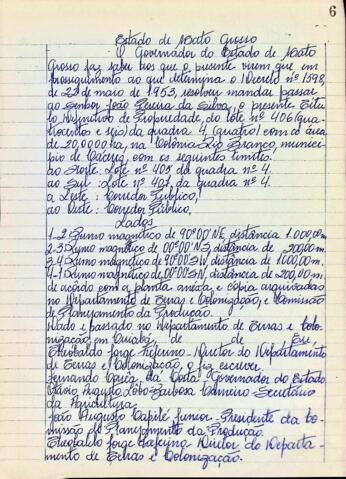 6
Estado de Mato Grosso
O Governador do Estado de Mato
Grosso faz saber aos que o presente virem que em
prosseguimento ao que determina o Decreto nº 1598,
de 22 de maio de 1953, resolveu mandar passar
ao Senhor João Vieira da Silva, o presente Titu
lo Definitivo de Propriedade, do lote nº 406 (qua
trocentos e seis) da quadra 4 (quatro) com a área
de 20,0000 ha, na Colônia Rio Branco, municí
pio de Cáceres, com os seguintes limites.
ao Norte: Lote nº 405 da quadra nº 4.
ao Sul: Lote nº 407, da quadra nº 4.
a Leste: Corredor Público,
ao Oeste: Corredor Público,
Lados
1-2 Rumo magnético de 90º00'NE, distância 1.000,00 m
2-3 Rumo magnético de 00º00'NS, distância de 200,00 m.
3-4 Rumo magnético de 90º00'SW, distância de 1000,00 m.
4-1 Rumo magnético de 00º00'SN, distância de 200,00 m.
de acordo com a planta anexa, e cópia arquivadas
no Departamento de Terras e Colonização, e Comissão
de Planejamento da Produção.
Dado e passado no Departamento de Terras e Colo
nização, em Cuiabá, de de Eu,
Theobaldo Jorge - Diretor do Departamento
de Terras e Colonização, o fiz escrever.
Fernando Corrêa da Costa - Governador do Estado
Flávio Augusto Lobo Barbosa Carneiro Secretário
da Agricultura.
João Augusto Capilé Junior - Presidente da Co
missão de Planejamento da Produção.
Theobaldo Jorge Diretor do Departa-
mento de Terras e Colonização.